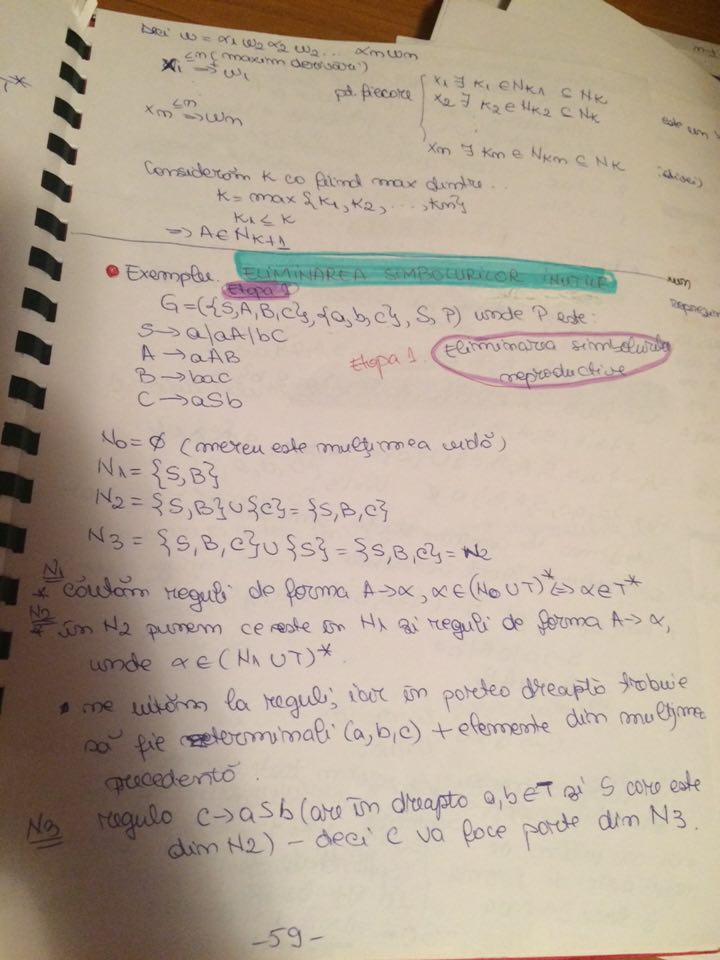 Deci w = α1 w2 α2 w2 ... αm wm
x1 ≤n⇒ w1 (maxim derivări)
xm ≤n⇒ wm
pt. fiecare { x1 ∃ k1 ∈ Nk1 ⊆ Nk
x2 ∃ k2 ∈ Nk2 ⊆ Nk
⋮
xm ∃ km ∈ Nkm ⊆ Nk
Considerăm k ca fiind max dintre..
k = max {k1, k2, ..., km}
k1 ≤ k
⇒ A ∈ Nk+1
• Exemplu. ELIMINAREA SIMBOLURILOR INUTILE
Etapa 1
G = ({S,A,B,C}, {a,b,c}, S, P) unde P este:
S → a|aA|bC
A → aAB
B → bac
C → aSb
Etapa 1. Eliminarea simbolurilor
neproductive
N0 = ∅ (mereu este mulțimea vidă)
N1 = {S,B}
N2 = {S,B} ∪ {C} = {S,B,C}
N3 = {S,B,C} ∪ {S} = {S,B,C} = N2
N1
* căutăm reguli de forma A → α, α ∈ (N0 ∪ T)* ⇔ α ∈ T*
N2
* în N2 punem ce este în N1 și reguli de forma A → α,
unde α ∈ (N1 ∪ T)*.
• ne uităm la reguli; iar în partea dreaptă trebuie
să fie terminali (a,b,c) + elemente din mulțimea
precedentă.
N3 regula C → aSb (are în dreapta a,b ∈ T și S care este
din N2) – deci C va face parte din N3.
-59-